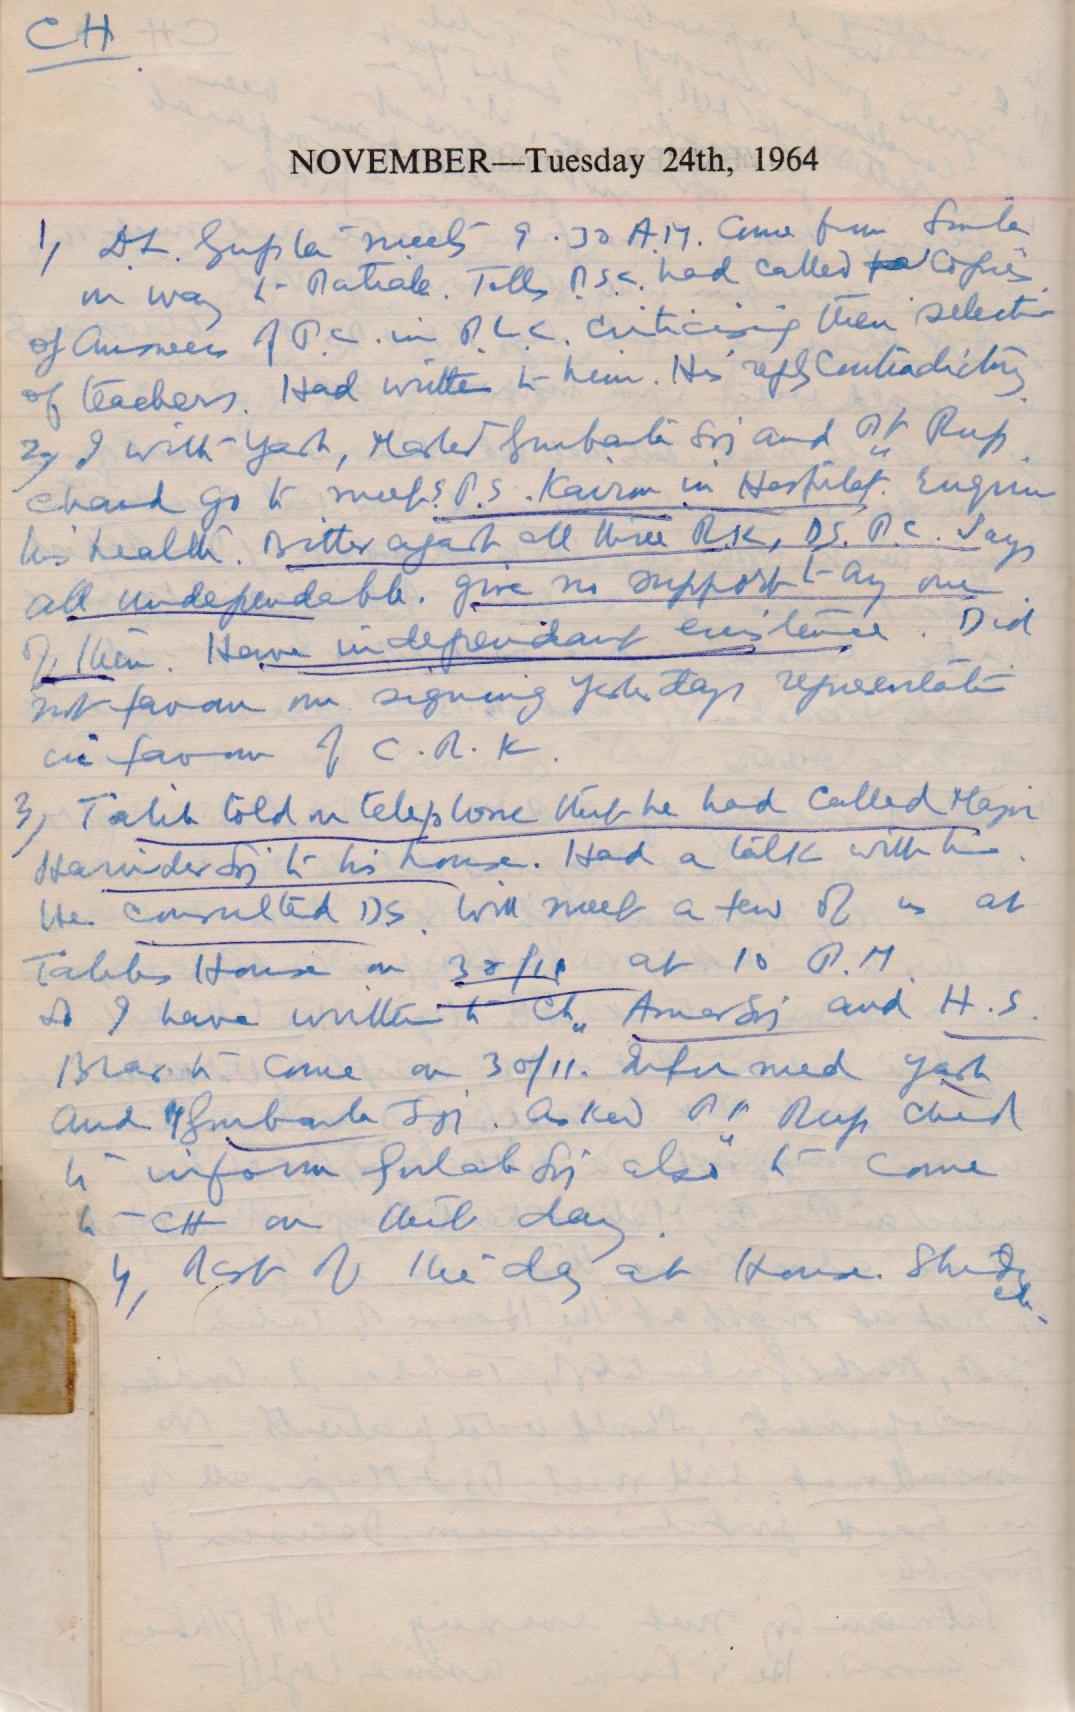 CH
NOVEMBER—Tuesday 24th, 1964
1, D.L. Gupta meets 9.30 A.M. Come from Simla
on way to Patiala. Tells P.S.C. had called Copies
of Answers of P.C. in P.L.C. Criticising their selection
of teachers. Had written to him. His reply Contradictory.
2, I with Yash, Master Gurbanta Sij and Pt Rup
Chand go to meet S. P.S. Kairon in Hospital. Enquire
his health. Bitter against all three R.K, D.S. P.C. Says
all undependable. give no support to any one
of them. Have independant existence. Did
not favour our signing yesterdays representation
in favour of C.R.K.
3, Talib told on telephone that he had called Major
Harinder Sij to his house. Had a talk with him.
He consulted DS. Will meet a few of us at
Talibs House on 30/11 at 10 P.M.
So I have written to Ch. Amar Sij and H.S.
Brar to come on 30/11. Informed Yash
and Gurbanta Sij. Asked Pt Rup Chand
to inform Gulab Sij also to come
to CH on that day.
4, Rest of the day at House.